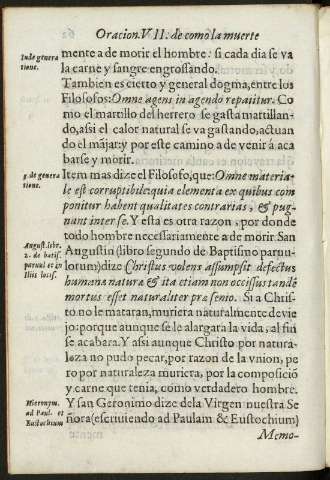 Oracion. VII. de como la muerte
mente a de morir el hombre: si cada dia se va
la carne y sangre engrossando.
Tambien es cierto y general dogma, entre los
Filosofos: Omne agens in agendo repatitur. Co
mo el martillo del herrero se gasta martillan-
do, assi el calor natural se va gastando, actuan
do el májar: y por este camino a de venir á aca
barse y morir.
Item mas dize el Filosofo, que: Omne materia-
le est corruptibile: quia elementa ex quibus com
ponitur habent qualitates contrarias, & pug-
nant inter se. Y esta es otra razon, por donde
todo hombre necessariamente a de morir. San
Augustin (libro segundo de Baptismo parvu-
lorum) dize Christus volens assumpsit defectus
humanæ naturæ & ita etiam non occissus tandē
mortus esset naturaliter præ senio. Si a Chris-
to no le mataran, muriera naturalmente de vie
jo: porque aunque se le alargara la vida, al fin
se acabara. Y assi aunque Christo por natura-
leza no pudo pecar, por razon de la vnion, pe
ro por naturaleza muriera, por la composició
y carne que tenia, como verdadero hombre.
Y san Geronimo dize dela Virgen nuestra Se
ñora (escriuiendo ad Paulam & Eustochium)
Memo-
In de genera
tione.
3. de genera
tione.
August. libr.
2. de batis.
paruul. et in
illis locis.
Hieronym.
ad Paul. et
Eustochium